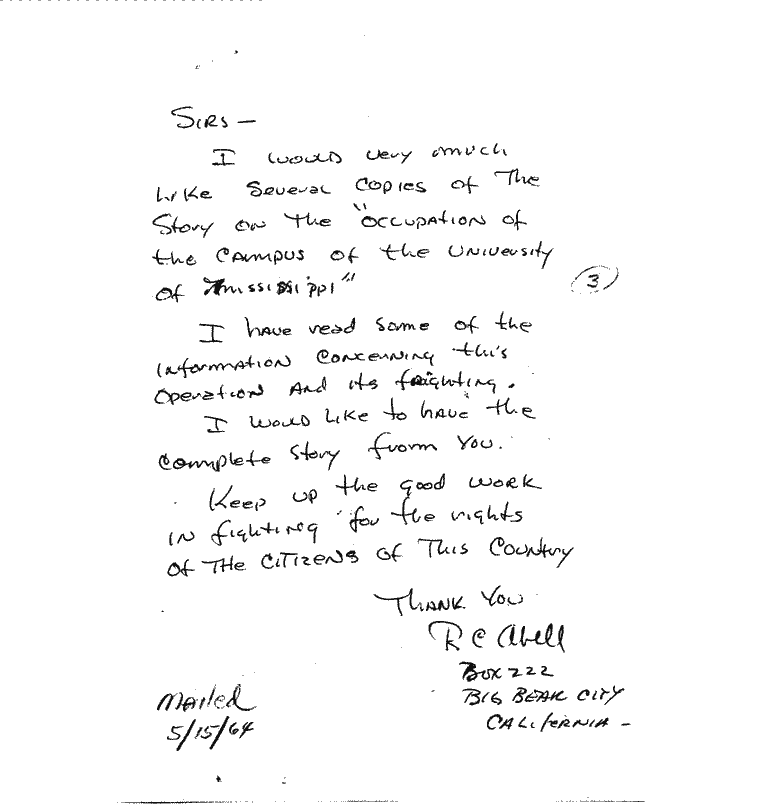 Sirs —
I would very much
like several copies of the
story on the "occupation of
the campus of the University
of Mississippi"
3
I have read some of the
information concerning this
operation and its frighting.
I would like to have the
complete story from you.
Keep up the good work
in fighting for the rights
of the citizens of this country
Thank you
R C Abell
Box 222
Big Bear City
California –
Mailed
5/15/64